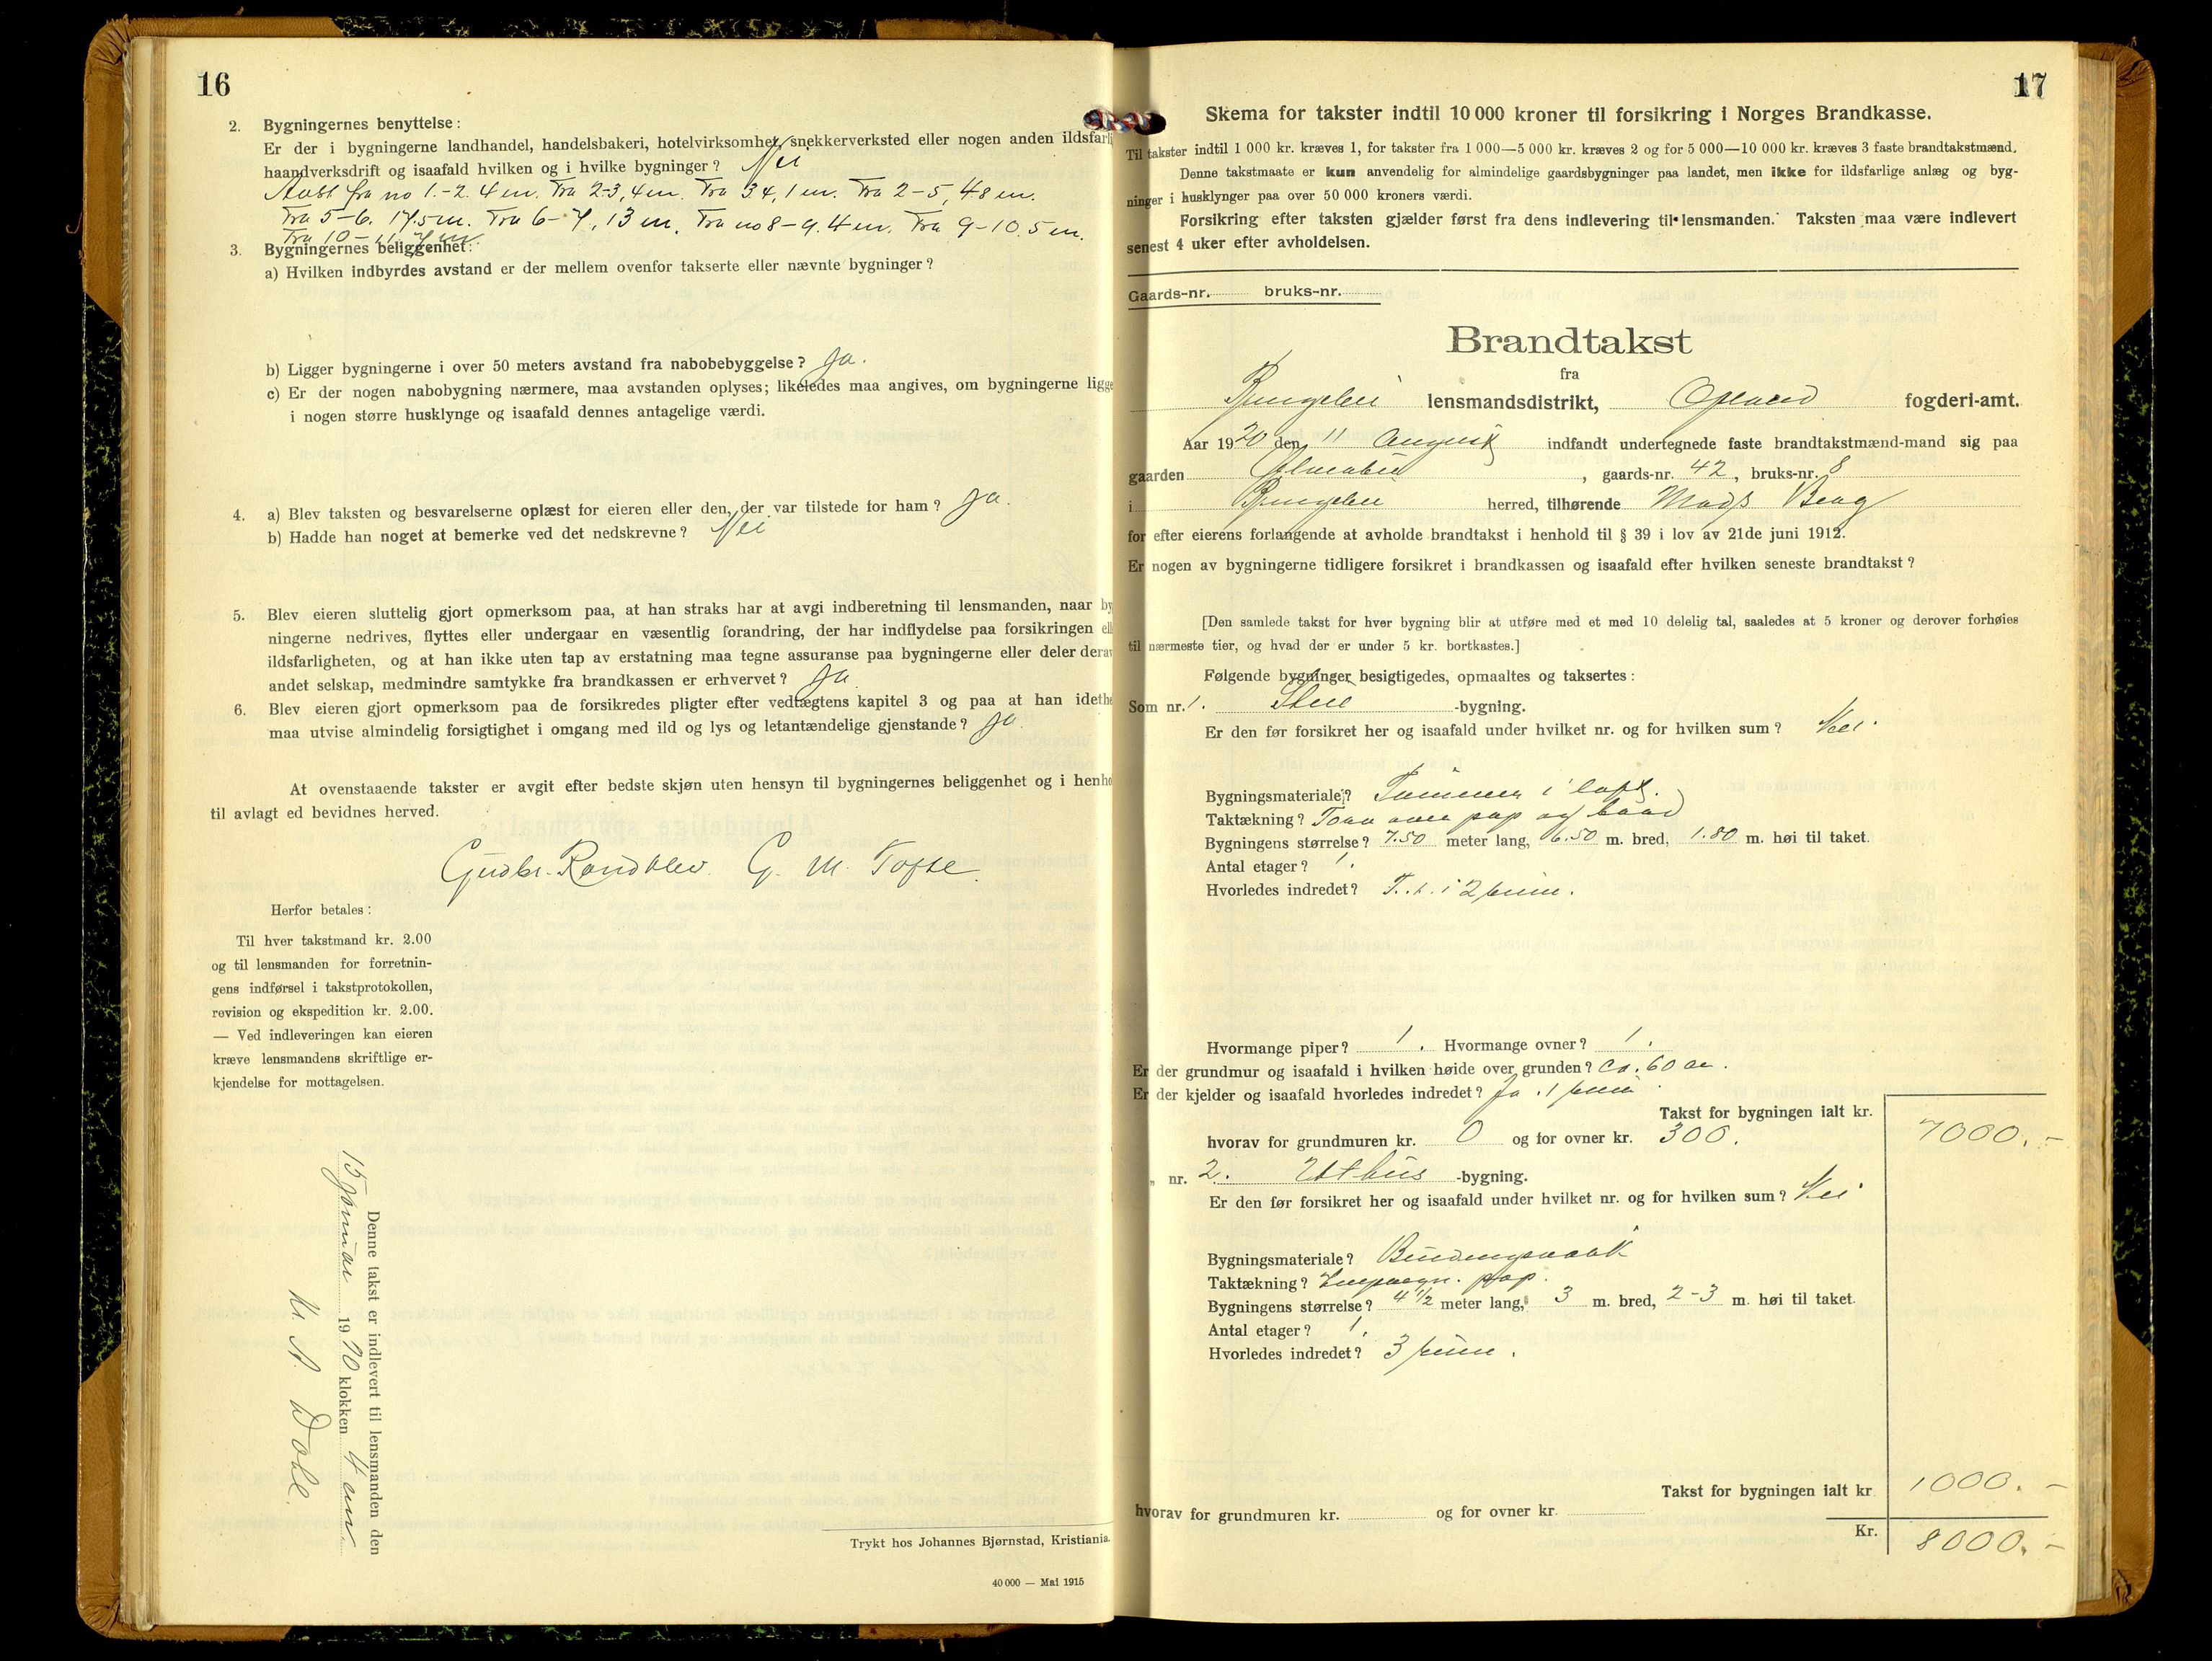 16
2. Bygningernes benyttelse:
Er der i bygningerne landhandel, handelsbakeri, hotelvirksomhet, snekkerverksted eller nogen anden ildsfarli
haandverksdrift og isaafald hvilken og i hvilke bygninger? Nei
fra no 1.-2. 4 m. Fra 2-3, 4 m. Fra 3 4, 1 m. Fra 2-5, 48 m.
Fra 5-6. 17.5 m. Fra 6-7, 13 m. Fra no 8-9. 4 m. Fra 9-10. 5 m.
Fra 10-11. 7 m.
3. Bygningernes beliggenhet:
a) Hvilken indbyrdes avstand er der mellem ovenfor takserte eller nævnte bygninger?
b) Ligger bygningerne i over 50 meters avstand fra nabobebyggelse? Ja.
c) Er der nogen nabobygning nærmere, maa avstanden oplyses; likeledes maa angives, om bygningerne ligge
i nogen større husklynge og isaafald dennes antagelige værdi.
4. a) Blev taksten og besvarelserne oplæst for eieren eller den, der var tilstede for ham? Ja.
b) Hadde han noget at bemerke ved det nedskrevne? Nei
5. Blev eieren sluttelig gjort opmerksom paa, at han straks har at avgi indberetning til lensmanden, naar by
ningerne nedrives, flyttes eller undergaar en væsentlig forandring, der har indflydelse paa forsikringen ell
ildsfarligheten, og at han ikke uten tap av erstatning maa tegne assuranse paa bygningerne eller deler derav
andet selskap, medmindre samtykke fra brandkassen er erhvervet? Ja.
6. Blev eieren gjort opmerksom paa de forsikredes pligter efter vedtægtens kapitel 3 og paa at han idethe
maa utvise almindelig forsigtighet i omgang med ild og lys og letantændelige gjenstande? Ja.
At ovenstaaende takster er avgit efter bedste skjøn uten hensyn til bygningernes beliggenhet og i henho
til avlagt ed bevidnes herved.
Gudbr. Randklev. G. M. Tofte.
Herfor betales:
Til hver takstmand kr. 2.00
og til lensmanden for forretnin-
gens indførsel i takstprotokollen,
revision og ekspedition kr. 2.00.
— Ved indleveringen kan eieren
kræve lensmandens skriftlige er-
kjendelse for mottagelsen.
Denne takst er indlevert til lensmanden den
15 januar 1920 klokken 4 em.
Trykt hos Johannes Bjørnstad, Kristiania.
40 000 — Mai 1915
17
Skema for takster indtil 10 000 kroner til forsikring i Norges Brandkasse.
Til takster indtil 1 000 kr. kræves 1, for takster fra 1 000—5 000 kr. kræves 2 og for 5 000—10 000 kr. kræves 3 faste brandtakstmænd.
Denne takstmaate er kun anvendelig for almindelige gaardsbygninger paa landet, men ikke for ildsfarlige anlæg og byg-
ninger i husklynger paa over 50 000 kroners værdi.
Forsikring efter taksten gjælder først fra dens indlevering til lensmanden. Taksten maa være indlevert
senest 4 uker efter avholdelsen.
Gaards-nr. bruks-nr.
Brandtakst
fra
Ringebu lensmandsdistrikt, Opland fogderi-amt.
Aar 1920 den 11 August indfandt undertegnede faste brandtakstmænd-mand sig paa
gaarden , gaards-nr. 42, bruks-nr. 8
i Ringebu herred, tilhørende Mads Berg
for efter eierens forlangende at avholde brandtakst i henhold til § 39 i lov av 21de juni 1912.
Er nogen av bygningerne tidligere forsikret i brandkassen og isaafald efter hvilken seneste brandtakst?
[Den samlede takst for hver bygning blir at utføre med et med 10 delelig tal, saaledes at 5 kroner og derover forhøies
til nærmeste tier, og hvad der er under 5 kr. bortkastes.]
Følgende bygninger besigtigedes, opmaaltes og taksertes:
Som nr. 1. Stue -bygning.
Er den før forsikret her og isaafald under hvilket nr. og for hvilken sum? Nei.
Bygningsmateriale? Tømmer i laft.
Taktækning? Torv over pap og bord
Bygningens størrelse? 7.50 meter lang, 6.50 m. bred, 1.80 m. høi til taket.
Antal etager? 1.
Hvorledes indredet? T. t. i 2 rum.
Hvormange piper? 1. Hvormange ovner? 1.
Er der grundmur og isaafald i hvilken høide over grunden? Ca. 60 cm.
Er der kjelder og isaafald hvorledes indredet? Ja. 1 rum
Takst for bygningen ialt kr. 7000.-
hvorav for grundmuren kr. 0 og for ovner kr. 300.
„ nr. 2. Uthus -bygning.
Er den før forsikret her og isaafald under hvilket nr. og for hvilken sum? Nei
Bygningsmateriale? Bindingsverk
Taktækning? Impregn. pap.
Bygningens størrelse? 4 1/2 meter lang, 3 m. bred, 2-3 m. høi til taket.
Antal etager? 1.
Hvorledes indredet? 3 rum.
Takst for bygningen ialt kr. 1000.-
hvorav for grundmuren kr. og for ovner kr.
Kr. 8000.-